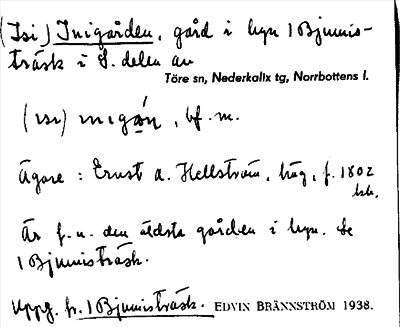 (Isi) Inigården, gård i byn 1 Bjumis-
träsk i S. delen av
Töre sn, Nederkalix tg, Norrbottens l.
(ısı) ınıgån, bf. m.
Ägare : Ernst A. Hellström, häg, f. 1802
Är f. n. den äldsta gården i byn. Se
1 Bjumisträsk.
Uppg. fr. 1 Bjumisträsk. EDVIN BRÄNNSTRÖM 1938.